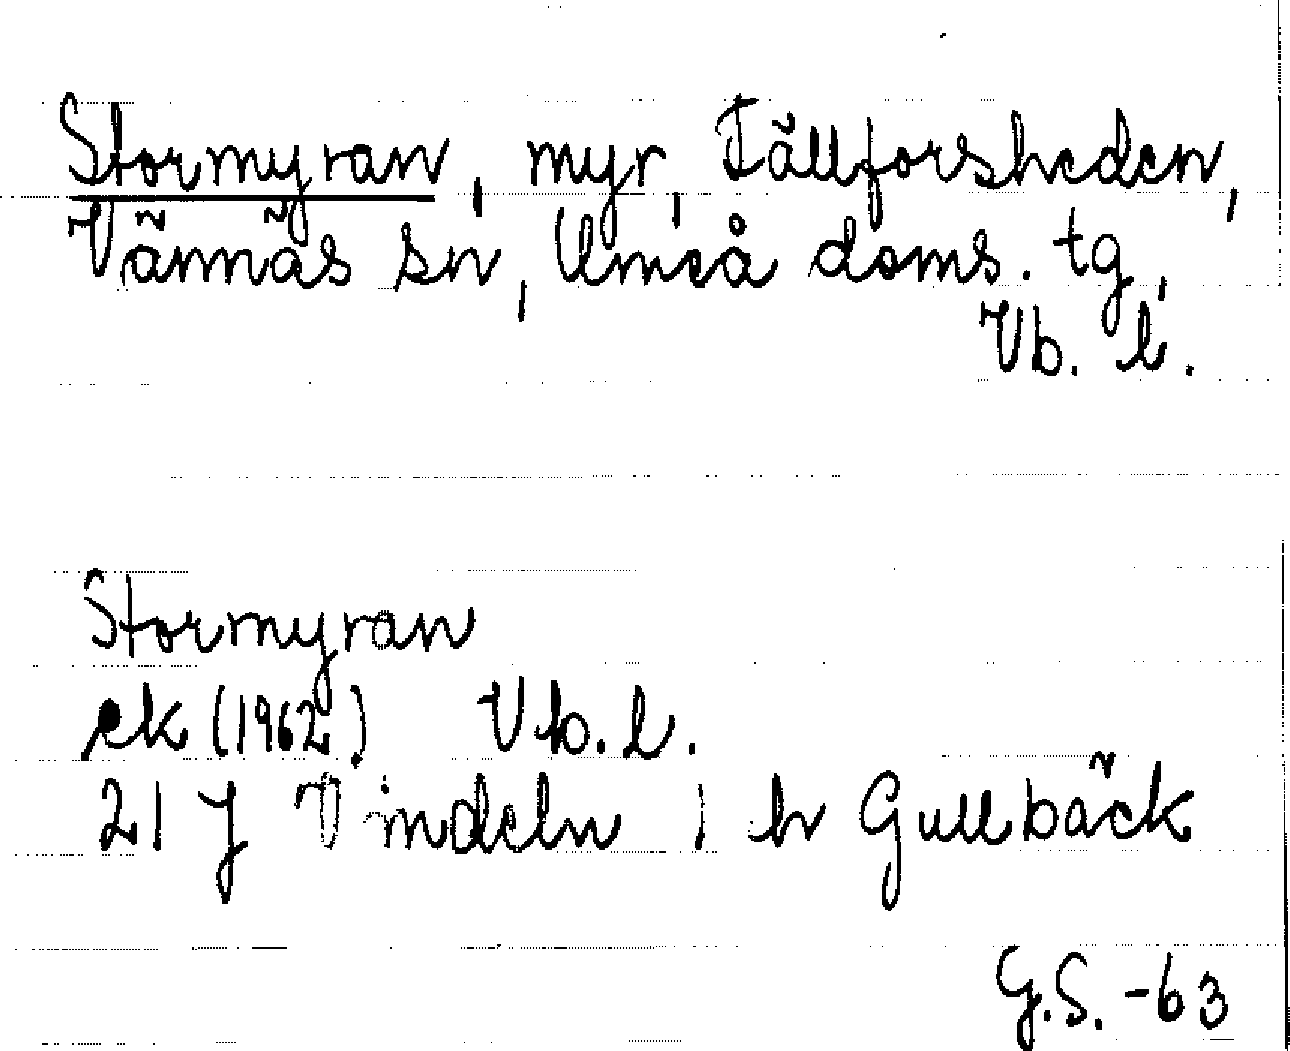 Stormyran, myr, Fällforsheden,
Vännäs sn, Umeå doms. tg,
Vb. l.
Stormyran
ek (1962) Vb. l.
21 J Vindeln 1 h Gullbäck
G.S. -63